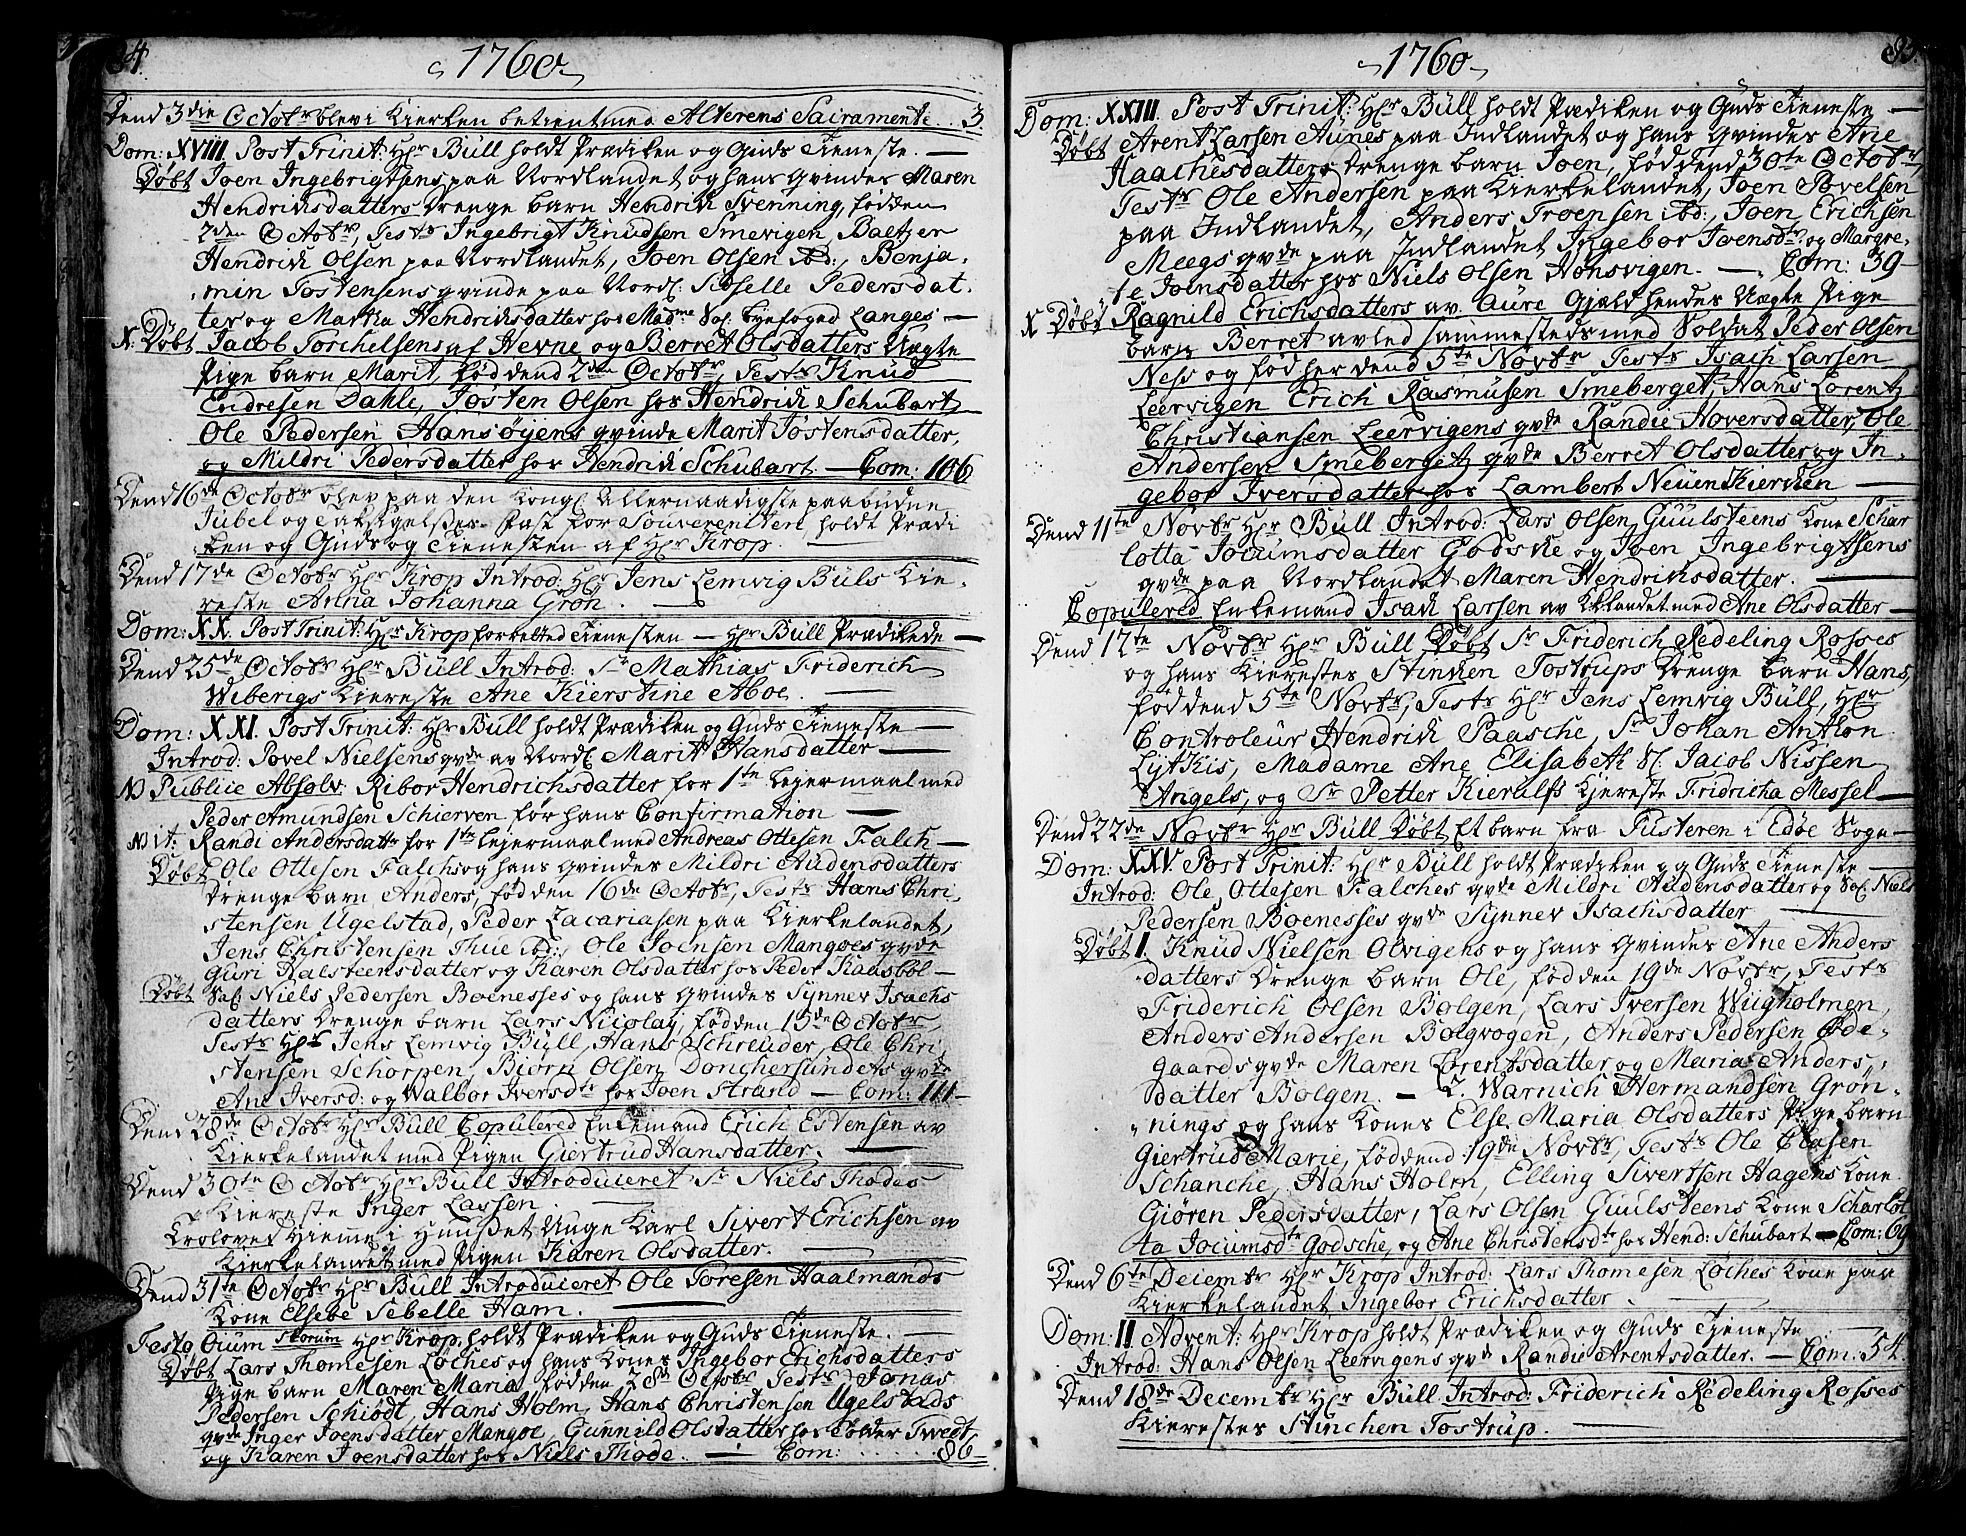 84.
1760
Dend 3die Octobr blev i Kierken betient med Alterens Sacramente .. 3.
Dom: XVIII. Post Trinit: Hr Büll holdt Prædiken og Guds Tieneste. —
Döbt Joen Ingebrigtsens paa Nordlandet og hans Qvindes Maren
Hendrichsdatters Drenge barn Hendrich Svenning, födden
2den Octobr, Tests Ingebrigt Knudsen Smevigen Baltzer
Hendrich Olsen paa Nordlandet, Joen Olsen ibd:, Benja-
min Tostensens qvinde paa Nordl. Sidselle Pedersdat-
ter og Martha Hendrichsdatter hos Madme Sal. Byefoged Langes —
X. Döbt Jacob Torchelsens af Hevne og Berret Olsdatters Uægte
Pige barn Marit, föd dend 2den Octobr, Tests Knud
Endresen Dahle, Tosten Olsen hos Hendrich Schubart
Ole Pedersen Hansöyens qvinde Marit Tostensdatter,
og Mildri Pedersdatter hos Hendrich Schubart. — Com: 106
Dend 16de Octobr blev paa den Kongl. Allernaadigste paabudne
Jubel og Taksigelses-Fast for Souvereniteten, holdt Prædi
ken og Guds og Tienesten af Hr Krop. —
Dend 17de Octobr Hr Krop Introd: Hr Jens Lemvig Büls Kie-
reste Anna Johanna Grön. —
Dom: XX. Post Trinit: Hr Krop forretted Tienesten — Hr Büll Prædikede —
Dend 25de Octobr Hr Büll Introd: Sr Mathias Friderich
Wibergs Kiereste Ane Kierstine Aboe. —
Dom: XXI. Post Trinit: Hr Büll holdt Prædiken og Guds Tieneste —
Introd: Povel Nielsens qvde av Nordl. Marit Hansdatter —
N) Publice Absolv. Ribor Hendrichsdatter for 1te Leiermaal med
Peder Amundsen Schierven för hans Confirmation —
N it: Randi Andersdatr for 1te Leiermaal med Andreas Ottesen Falch —
Döbt Ole Ottesen Falchs og hans qvindes Mildri Audensdatters
Drenge barn Anders, födden 16de Octobr, Tests Hans Chri-
stensen Ugelstad, Peder Zacariasen paa Kierkelandet,
Jens Christensen Thue ibd:, Ole Joensen Mangoes qvde
Guri Halsteensdatter og Karen Olsdatter hos Peder Kaasböl —
Döbt Sal. Niels Pedersen Boenesses og hans Qvindes Synnev Isachs
datters Drenge barn Lars Nicolaj, födden 15de Octobr,
Tests Hr Jens Lemvig Büll, Hans Schreuder, Ole Chri
stensen Schorpen, Biörn Olsen Donchersundets qvde
Ane Iversd: og Walbor Iversdtr hos Joen Strand — Com: 111 —
Dend 28de Octobr Hr Büll Copulered Enkemand Erich Estensen av
Kierkelandet med Pigen Giertrud Hansdatter. —
Dend 30te Octobr Hr Büll Introducieret Sr Niels Thodes
Kiereste Inger Lassen —
Trolovet Hieme i Huuset Unge Karl Sivert Erichsen av
Kierkelandet med Pigen Karen Olsdatter. —
Dend 31te Octobr Hr Büll Introducieret Ole Toresen Haalmands
Kone Elsebe Sebelle Ham. —
Festo Oium Storum Hr Krop holdt Prædiken og Guds Tieneste. —
Döbt Lars Thomesen Löches og hans Kones Ingebor Erichsdatters
Pige barn Maren Maria, födden 28de Octobr, Tests Jonas
Pedersen Schiödt, Hans Holm, Hans Christensen Ugelstads
qvde Inger Joensdatter Mangoe, Gunnild Olsdatter hos Tolder Tvedt,
og Karen Joensdatter hos Niels Thode. — Com: 86 —
85.
1760
Dom: XXIII. Post Trinit: Hr Büll holdt Prædiken og Guds Tieneste —
Döbt Arent Larsen Aunes paa Indlandet og hans Qvindes Ane
Haachesdatters Drenge barn Joen, föd dend 30te Octobr,
Tests Ole Andersen paa Kierkelandet, Joen Povelsen
paa Indlandet, Anders Troensen ibd:, Joen Erichsen
Meegs qvde paa Indlandet Ingebor Joensdtr og Margre-
te Joensdatter hos Niels Olsen Honsvigen. — Com: 39 —
X Döbt Ragnild Erichsdatters av Aure Gjæld hendes Uægte Pige
barn Berret avled sammesteds med Soldat Peder Olsen
Ness og föd her dend 5te Novbr Tests Isach Larsen
Leervigen Erich Rasmusen Smeberget, Hans Lorentz
Christiansen Leervigens qvde Randie Hoversdatter, Ole
Andersen Smebergets qvde Berret Olsdatter og In-
gebor Iversdatter hos Lambert Neuen Kierchen —
Dend 11te Novbr Hr Büll Introd: Lars Olsen Guulsteens Kone Schar
lotta Jocumsdatter Godske og Joen Ingebrigtsens
qvde paa Nordlandet Maren Hendrichsdatter. —
Copulered Enkemand Isach Larsen av Kklandet med Ane Olsdatter —
Dend 12te Novbr Hr Büll Döbt Sr Friderich Redeling Rosses
og hans Kierestes Stinken Tostrups Drenge barn Hans
föd dend 5te Novbr, Tests Hr Jens Lemvig Büll, Hr
Controleur Hendrich Paasche, Sr Johan Anthon
Lytkis, Madame Ane Elisabeth Sl. Jacob Nissen
Angels, og Sr Petter Kierulfs Kiereste Fridricha Messel —
Dend 22de Novbr Hr Büll Döbt Et barn fra Tusteren i Edöe Sogn —
Dom: XXV. Post Trinit: Hr Büll holdt Prædiken og Guds Tieneste —
Introd: Ole Ottesen Falches qvde Mildri Audensdatter og Sal. Niels
Pedersen Boenesses qvde Synnev Isachsdatter —
Döbt 1. Knud Nielsen Olvigens og hans Qvindes Ane Anders
datters Drenge barn Ole, födden 19de Novbr, Tests
Friderich Olsen Bolgen, Lars Iversen Wiigholmen,
Anders Andersen Bolgvogen, Anders Pedersen Öde-
gaards qvde Maren Lorentsdatter og Maria Anders-
datter Bolgen. — 2. Warnich Hermandsen Grön-
nings og hans Kones Else Maria Olsdatters Pige barn
Giertrud Marie, föd dend 19de Novbr, Tests Ole Clasen
Schanche, Hans Holm, Elling Sivertsen Hagens Kone
Giören Pedersdatter, Lars Olsen Guulsteens Kone Scharlot
ta Jocumsdtr Godsche, og Ane Christensdtr hos Hend: Schubart — Com: 69
Dend 6te Decembr Hr Krop Introd: Lars Thomesen Löches Kone paa
Kierkelandet Ingebor Erichsdatter —
Dom: II Advent: Hr Krop holdt Prædiken og Guds Tjeneste —
Introd: Hans Olsen Leervigens qvde Randie Arentsdatter. — Com: 54.
Dend 18de Decembr Hr Büll Introd: Friderich Redeling Rosses
Kierestes Stinchen Tostrup. —